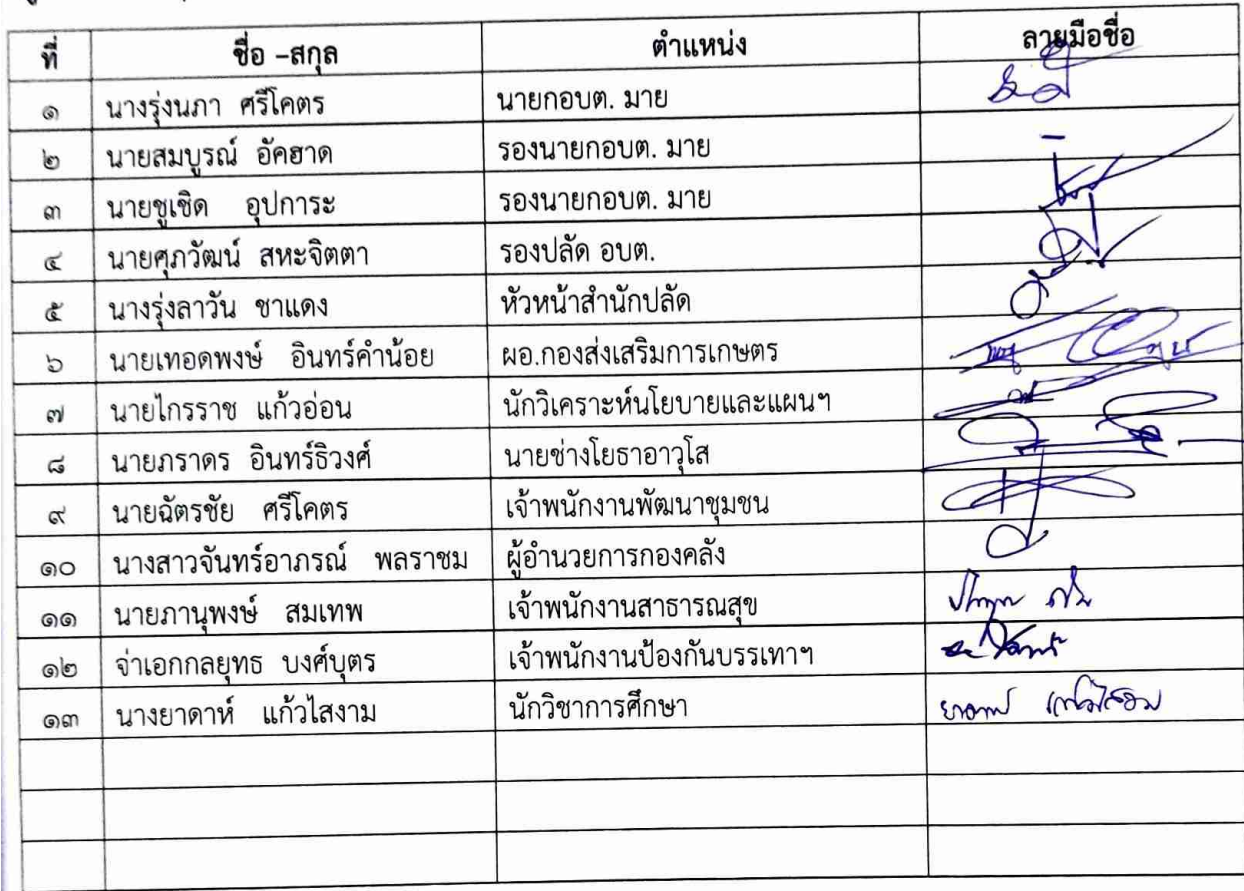 ที่ ชื่อ –สกุล ตำแหน่ง ลายมือชื่อ
๑ นางรุ่งนภา ศรีโคตร นายกอบต. มาย
๒ นายสมบูรณ์ อัคฮาด รองนายกอบต. มาย
๓ นายชูเชิด อุปการะ รองนายกอบต. มาย
๔ นายศุภวัฒน์ สหะจิตตา รองปลัด อบต.
๕ นางรุ่งลาวัน ชาแดง หัวหน้าสำนักปลัด
๖ นายเทอดพงษ์ อินทร์คำน้อย ผอ.กองส่งเสริมการเกษตร
๗ นายไกรราช แก้วอ่อน นักวิเคราะห์นโยบายและแผนฯ
๘ นายภราดร อินทร์ธิวงศ์ นายช่างโยธาอาวุโส
๙ นายฉัตรชัย ศรีโคตร เจ้าพนักงานพัฒนาชุมชน
๑๐ นางสาวจันทร์อาภรณ์ พลราชม ผู้อำนวยการกองคลัง
๑๑ นายภานุพงษ์ สมเทพ เจ้าพนักงานสาธารณสุข
๑๒ จ่าเอกกลยุทธ บงศ์บุตร เจ้าพนักงานป้องกันบรรเทาฯ
๑๓ นางยาดาห์ แก้วไสงาม นักวิชาการศึกษา